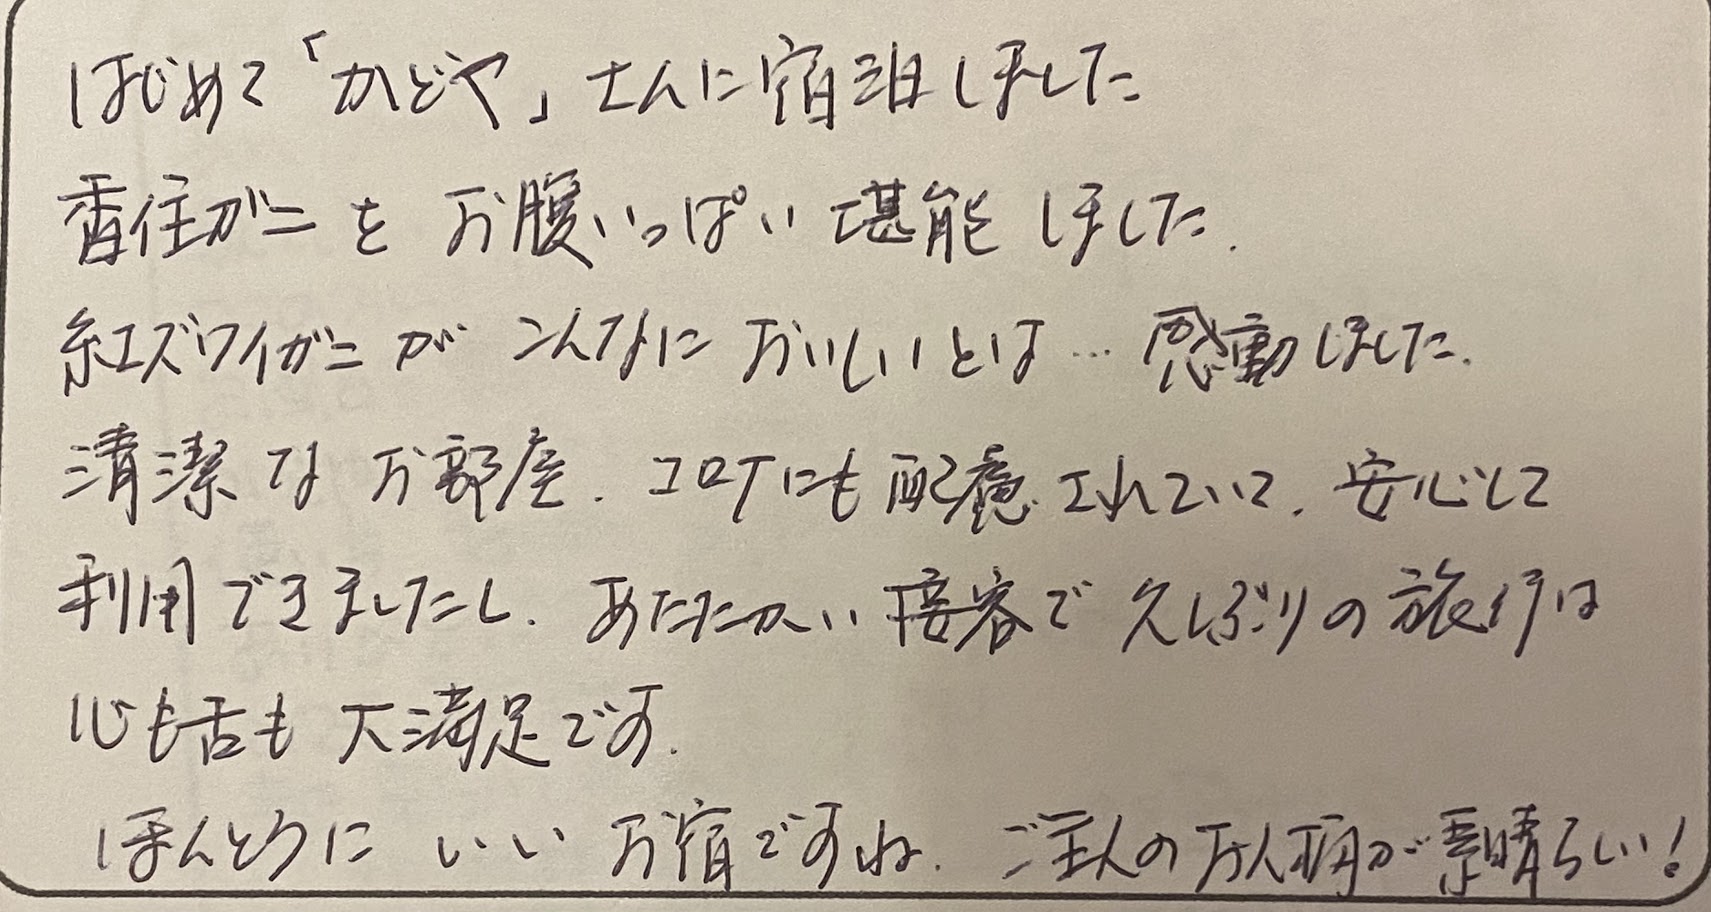 はじめて「かどや」さんに宿泊しました
香住ガニをお腹いっぱい堪能しました.
紅ズワイガニがこんなにおいしいとは…感動しました.
清潔なお部屋.コロナにも配慮されていて.安心して
利用できましたし.あたたかい接客で久しぶりの旅行は
心も舌も大満足です.
ほんとうにいいお宿ですね.ご主人のお人柄が素晴らしい!